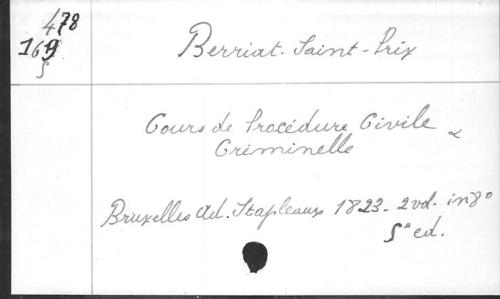 478
169
5
Berriat-Saint-Prix
Cours de Procédure Civile &
Criminelle
Bruxelles Ad. Stapleaux 1823. 2 vol. in 8º
5e ed.